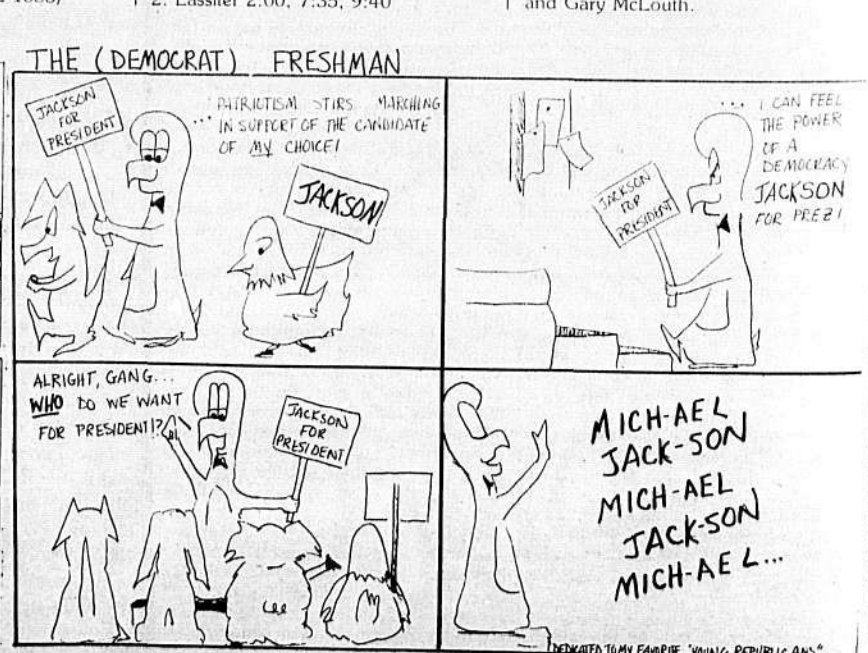 2. Lassiter 2:00, 7:35, 9:40
and Gary McLouth.
THE (DEMOCRAT) FRESHMAN
JACKSON
FOR
PRESIDENT
... PATRIOTISM STIRS MARCHING
IN SUPPORT OF THE CANDIDATE
OF MY CHOICE!
JACKSON
... I CAN FEEL
THE POWER
OF A
DEMOCRACY
JACKSON
FOR PREZ!
JACKSON
FOR
PRESIDENT
ALRIGHT, GANG...
WHO DO WE WANT
FOR PRESIDENT!?
JACKSON
FOR
PRESIDENT
MICH-AEL
JACK-SON
MICH-AEL
JACK-SON
MICH-AEL...
DEDICATED TO MY FAVORITE "YOUNG REPUBLICANS"